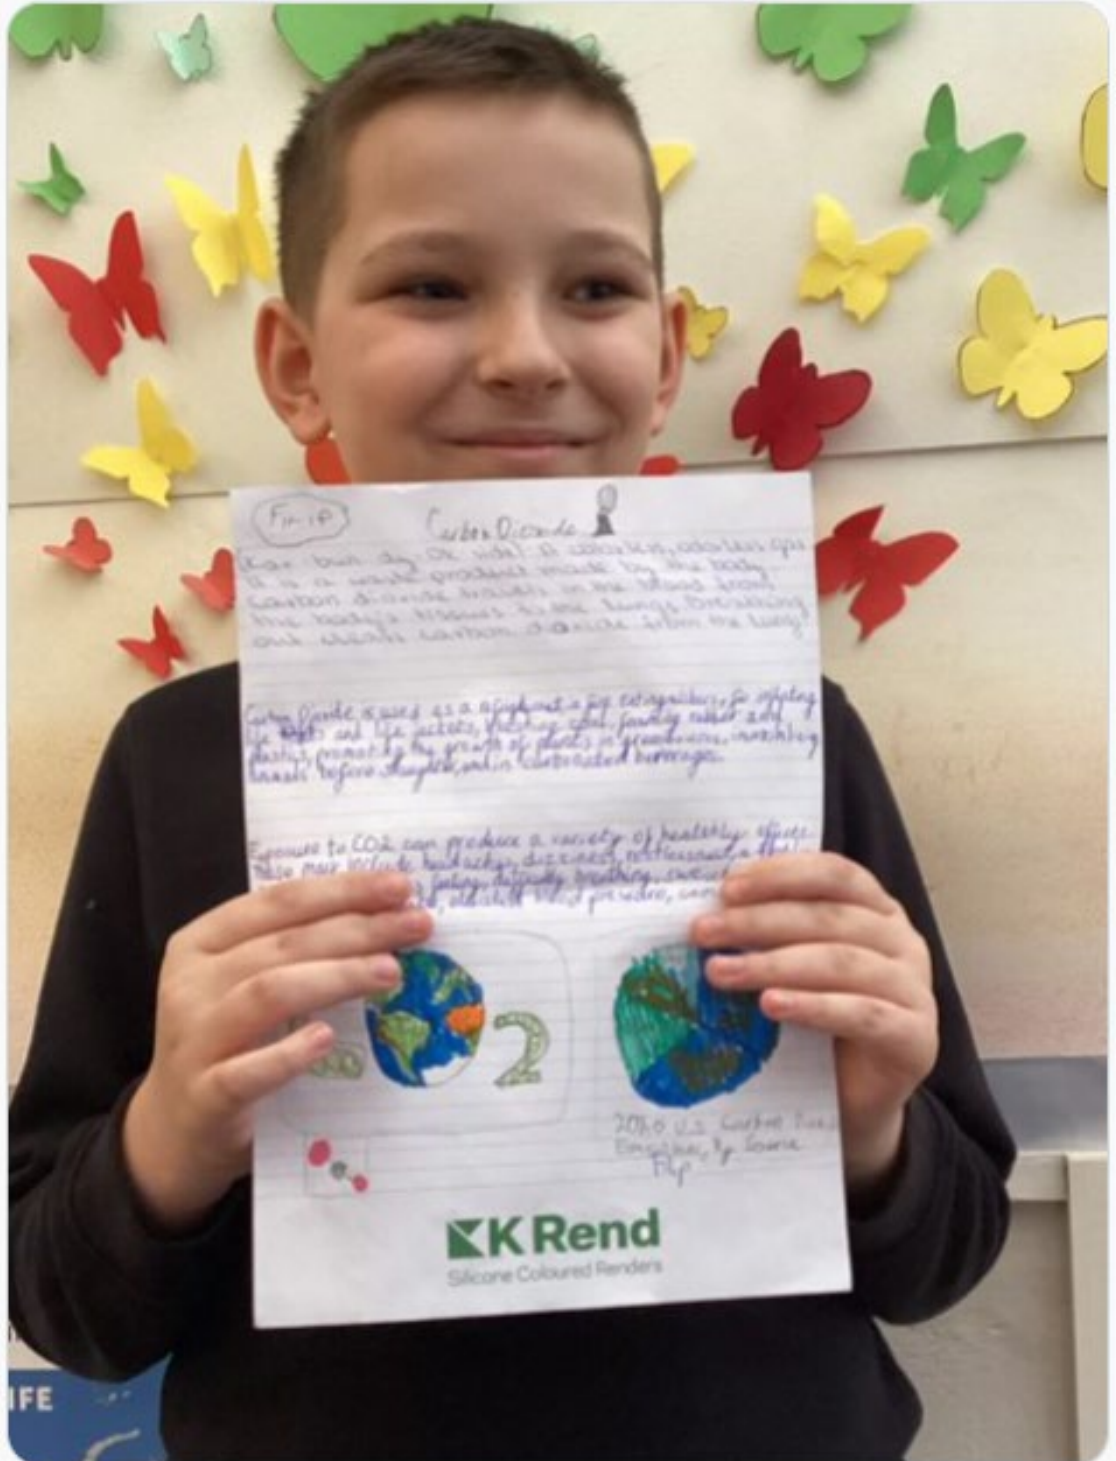 Carbon Dioxide
Kar bun dy. Ok side! A colorless, odorless gas
It is a waste product made by the body.
Carbon dioxide travels in the blood from
the body's tissues to the lungs. Breathing
out clears carbon dioxide from the lungs.
Carbon Dioxide is used as a in fire extinguishers, for inflating
life rafts and life jackets, coal, rubber and
plastics, promoting the growth of plants in greenhouses,
before and in carbonated beverages.
Exposure to CO2 can produce a variety of healthly effects.
These may include headaches, dizziness, restlessness, a
feeling, difficulty breathing,
elevated blood pressure,
2
U.S. Carbon
By Source
K Rend
Silicone Coloured Renders
IFE